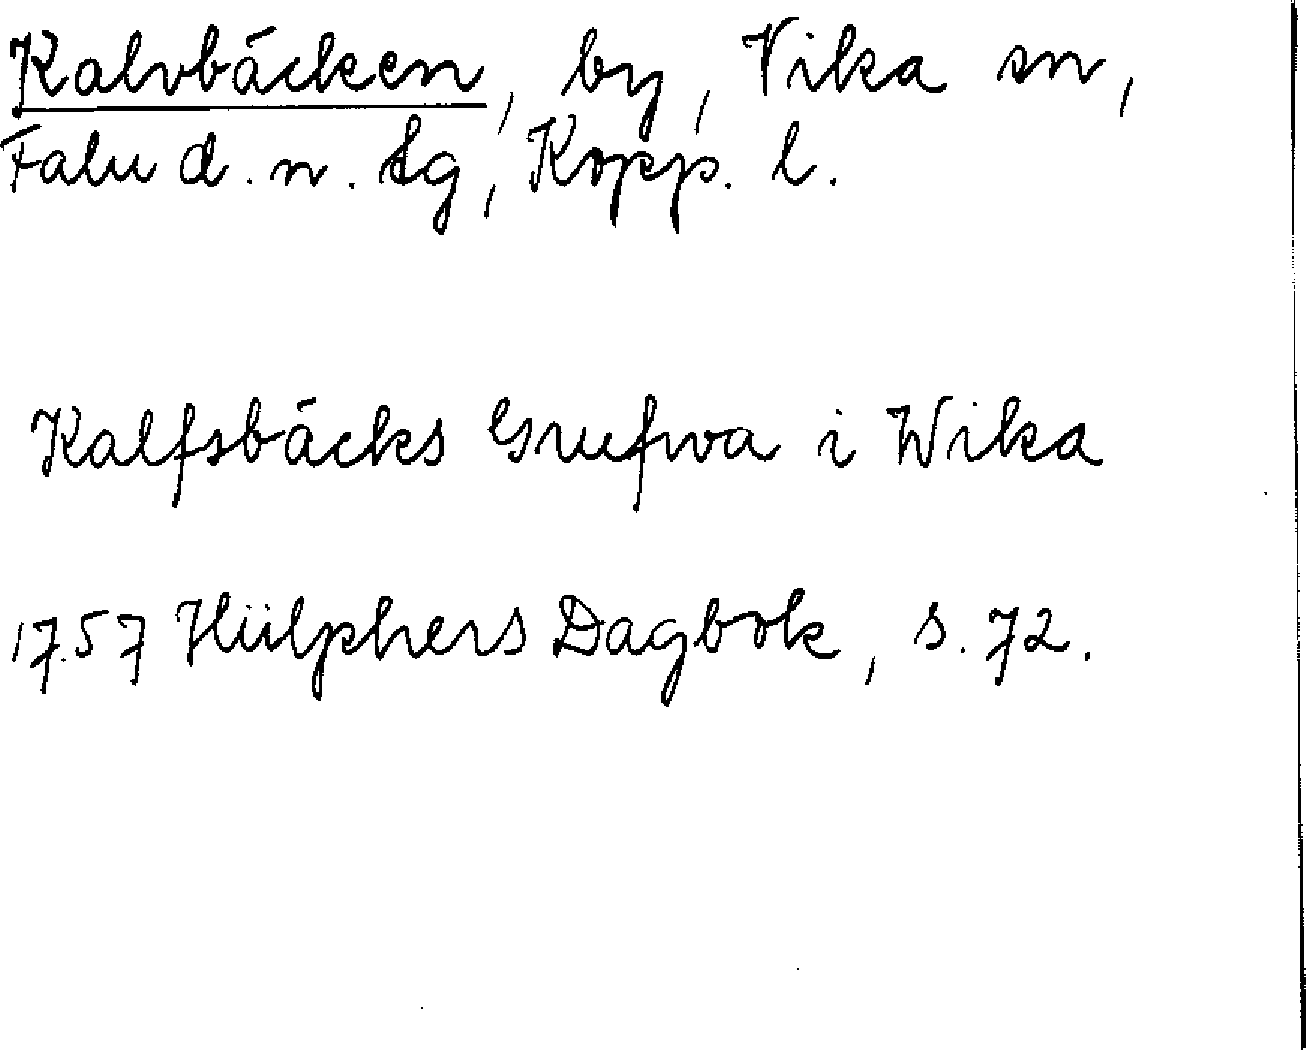 Kalvbäcken, by, Vika sn,
Falu d. n. tg, Kopp. l.
Kalfsbäcks Grufwa i Wika
1757 Hülphers Dagbok, s. 72.